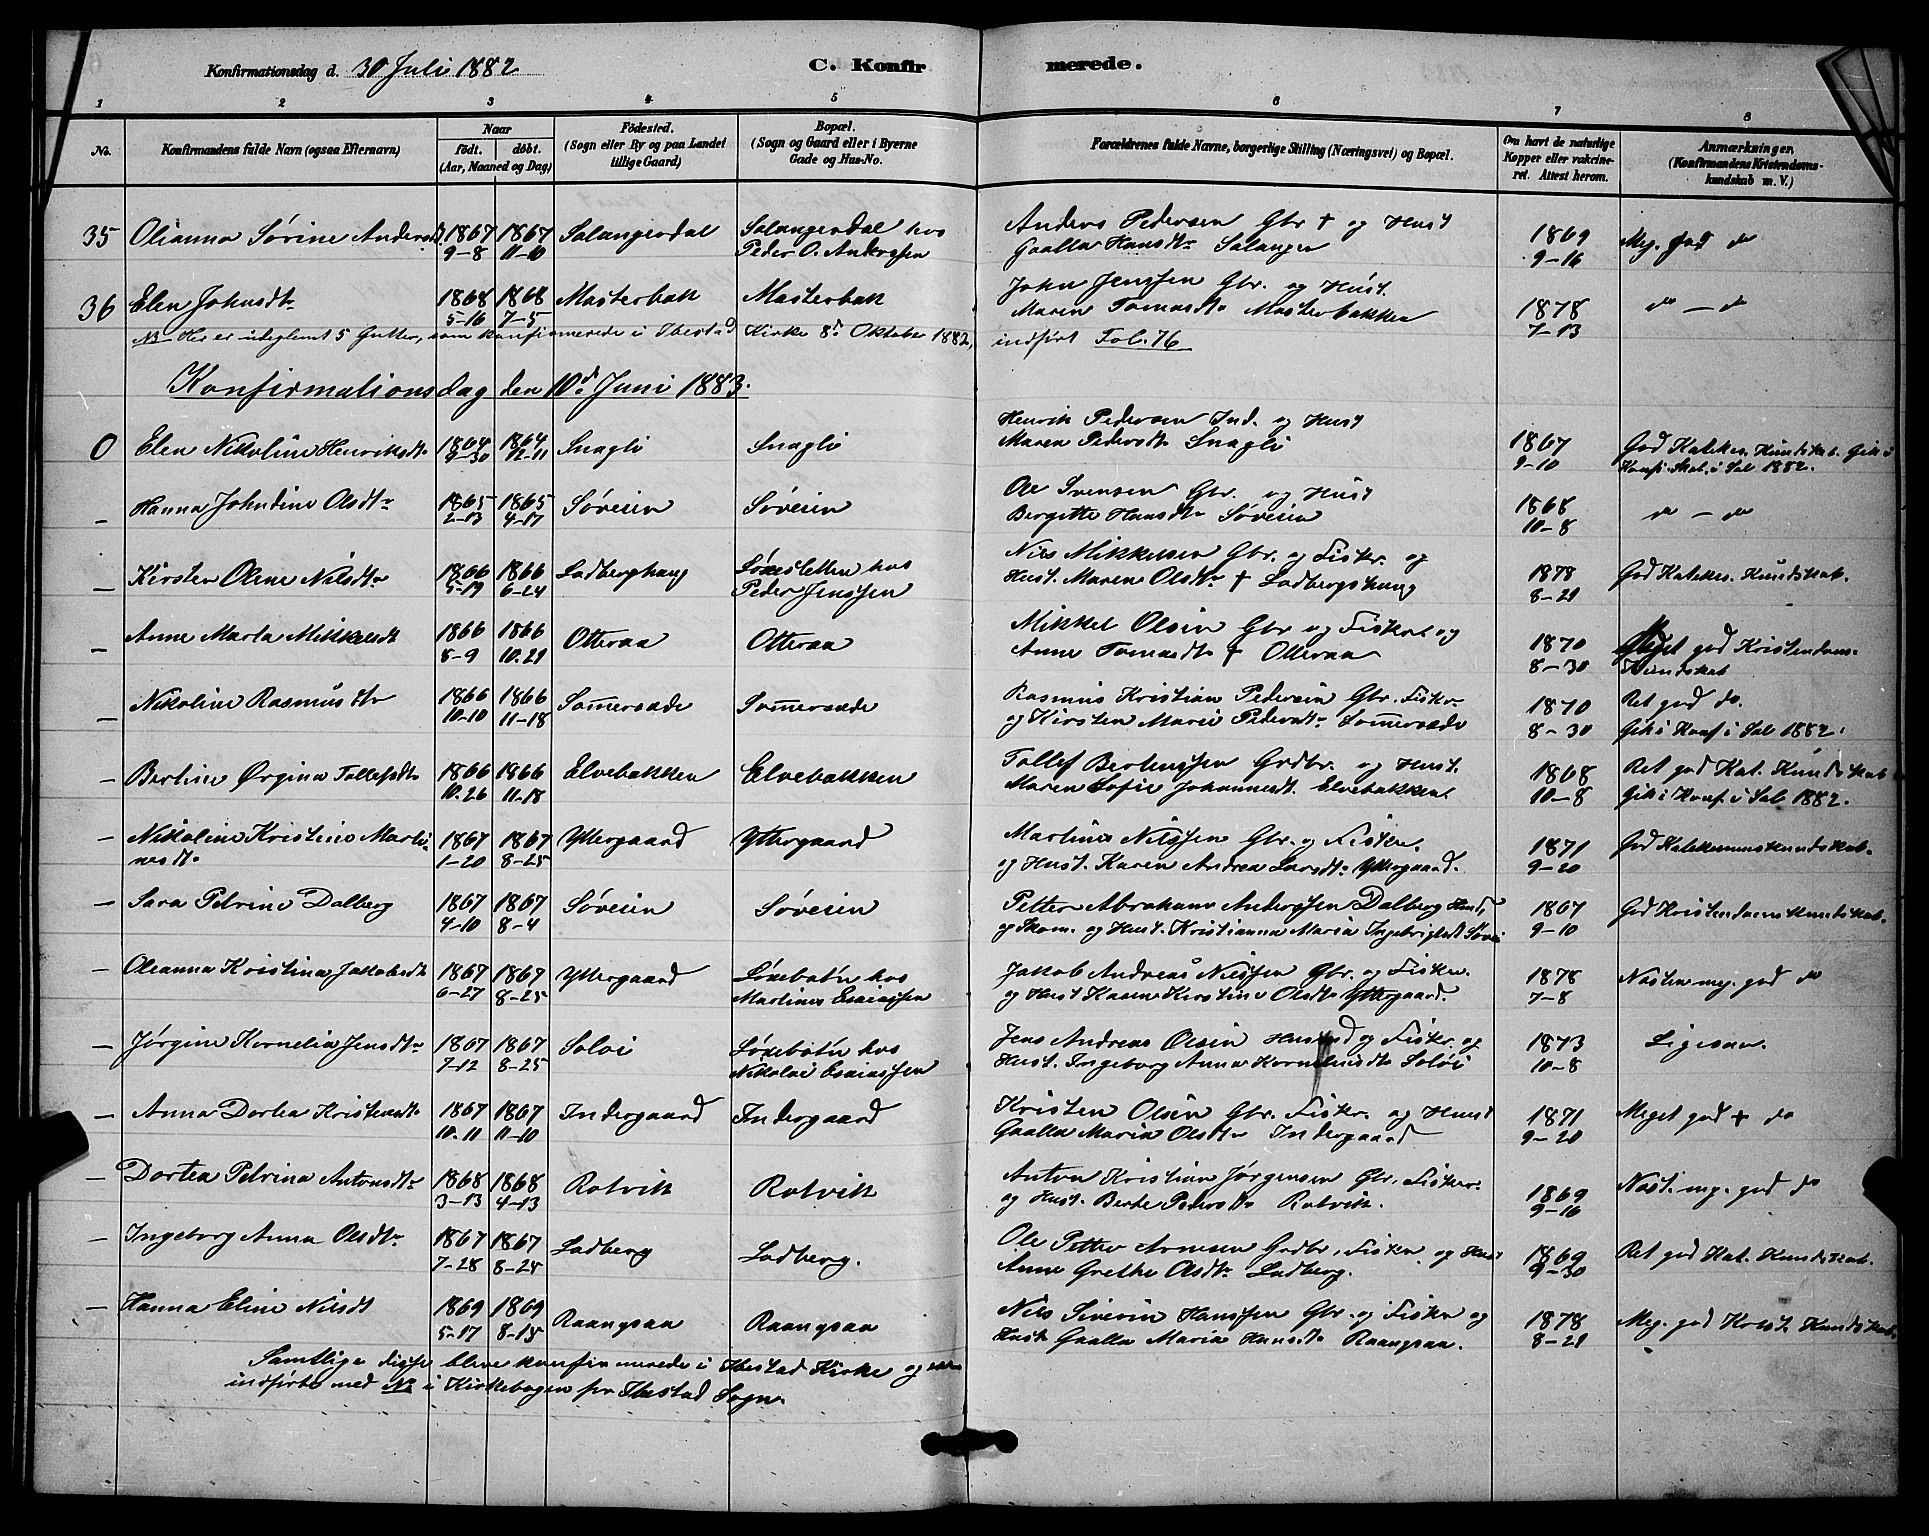 Konfirmationsdag d. 30 Juli 1882 C. Konfirmerede.
1 2 3 4 5 6 7 8
No. Konfirmandens fulde Navn (ogsaa Efternavn) Naar födt. döbt. (Aar, Maaned og Dag) Födested. (Sogn eller By og paa Landet tillige Gaard) Bopæl. (Sogn og Gaard eller i Byerne Gade og Hus-No. Forældrenes fulde Navne, borgerlige Stilling (Næringsvei) og Bopæl. Om havt de naturlige Kopper eller vakcineret. Attest herom. Anmærkninger. (Konfirmandens Kristendomskundskab m. V.)
35 Olianna Sørine Andersd. 1867 1867 Salangsdal Salangsdal hos Anders Pedersen Gbr † og Hust 1869 Meg. god do
9-8 11-10 Peder O. Anderssen Gaalla Hansdtr Salangen 9-16
36 Elen Johnsdtr 1868 1868 Masterbak Masterbak John Jenssen Gbr. og Hust. 1878 do - do
5-16 7-5 Maren Tomasdtr Masterbakken 7-13
NB Her er uteglemt 5 Gutter, som konfirmerede i Ibestad Kirke 8de Oktober 1882, indført Fol. 76
Konfirmationsdag den 10de Juni 1883.
0 Elen Nikoline Henriksdtr 1864 1864 Snagli Snagli Henrik Pedersen Ind. og Hust 1867 God Katekes. Kundskab. Gik i
9-30 12-11 Maren Pedersdtr Snagli 9-10 Konf. Skol. i Sal 1882.
- Hanna Johndine Olsdtr 1865 1865 Søveien Søveien Ole Svensen Gbr. og Hust 1868 do - do
2-13 4-17 Bergitte Hansdtr Søveien 10-8
- Kirsten Olene Nilsdtr 1866 1866 Ladberghaug Løxesletten hos Nils Mikkelsen Gbr. og Fisker. og 1878 God Katekes. Kundskab.
5-19 6-24 Peder Jenssen Hust. Maren Olsdtr † Ladbergshaug 8-21
- Anne Marta Mikkelsdt 1866 1866 Otteraa Otteraa Mikkel Olsen Gbr og Fisker og 1870 Meget god Kristendoms-
8-9 10.21 Anne Tomasdtr † Otteraa 8-30 Kundskab
- Nikoline Rasmusdtr 1866 1866 Somersæde Somersæde Rasmus Kristian Pedersen Gbr. Fisker 1870 Ret god do.
10-10 11-18 og Kirsten Marie Pedersdtr Somersæde 8-30 Gik i Konf i Sal 1882.
- Berline Ørgina Tollefsdtr 1866 1866 Elvebakken Elvebakken Tollef Bertenssen Grdbr. og Hust. 1868 Ret god Kat. Kundskab
10.26 11-18 Maren Sofie Johannesdt. Elvebakken. 10-8 Gik i Konf. i Sal 1882.
- Nikoline Kristine Marti- 1867 1867 Yttergaard Yttergaard Martines Nilssen Gbr. og Fisker. 1871 God Katekismuskundskab.
nesdtr 1-20 8-25 og Hust. Karen Andrea Larsdtr Yttergaard. 9-20
- Sara Petrine Dalberg 1867 1867 Søveien Søveien Petter Abraham Anderssen Dalberg Husmd, 1867 God Kristendomskundskab.
4-10 8-4 og Skom. og Hust. Kristianna Maria Ingebrigtsdt Søvei 9-10
- Oleanna Kristina Jakobsdt 1867 1867 Yttergaard Løxebotn hos Jakob Andreas Nilssen Gbr. og Fisker. 1878 Næsten meg. god do
6-27 8-25 Martines Esaiassen og Hust Karen Kirstine Olsdtr Yttergaard. 7-8
- Jørgine Kornelia Jensdtr 1867 1867 Soløi Løxebotn hos Jens Andreas Olsen Husmd og Fisker. og 1873 Ligesaa.
7-12 8-25 Nikolai Esaiassen Hust. Ingeborg Anna Korneliusdtr Soløi 10-8
- Anna Dortea Kristensdtr 1867 1867 Indergaard Indergaard Kristen Olsen Gbr. Fisker. og Hust 1871 Meget god + do
10.11 11-10 Gaalla Maria Olsdtr Indergaard 9-20
- Dortea Petrina Antonsdtr 1868 1868 Rotvik Rotvik Anton Kristian Jørgensen Gbr. Fisker. 1869 Næst. meg. god do
3-13 4-13 og Hust. Berte Pedersdtr Rotvik. 9-16
- Ingeborg Anna Olsdtr 1867 1867 Ladberg Ladberg. Ole Petter Arnesen Grdbr. Fisker og Hust 1869 Ret god Kat. Kundskab.
7-28 8-24 Anne Grethe Olsdtr Ladberg. 9-30
- Hanna Eline Nilsdt 1869 1869 Raangsaa Raangsaa Nils Siverin Hanssen Gbr. og Fisker og 1878 Meg. god Krist. Kundskab.
5-17 8-15 Hust Gaalla Maria Hansdtr Raangsaa. 8-21
Samtlige disse bleve konfirmerede i Ibestad Kirke og ere
indførte med No i Kirkebogen for Ibestad Sogn.